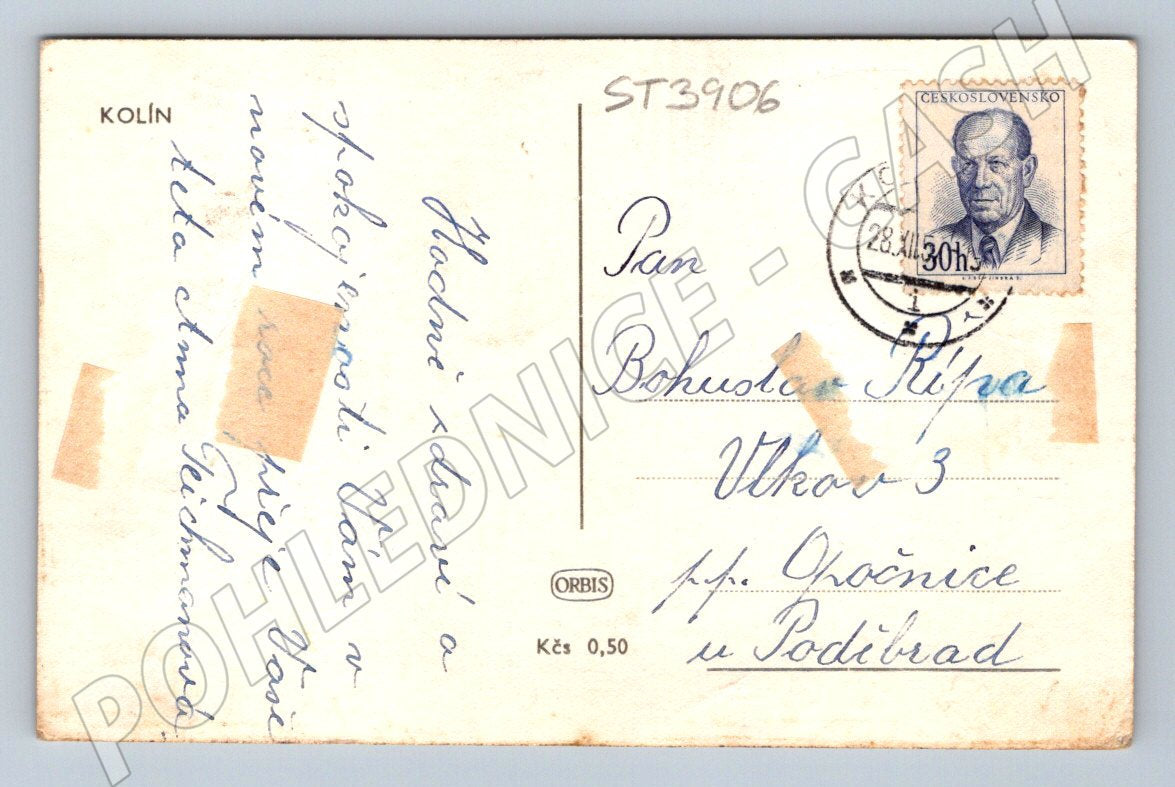 KOLÍN
ST3906
ČESKOSLOVENSKO
30h
28.XII.5
1
Hodně zdraví a
spokojenosti Vám v
novém roce přeje Vaše
teta Anna Teichmanová
Pan
Bohuslav Řípa
Vlkov 3
pp. Opočnice
u Poděbrad
ORBIS
Kčs 0,50
POHLEDNICE - CASH